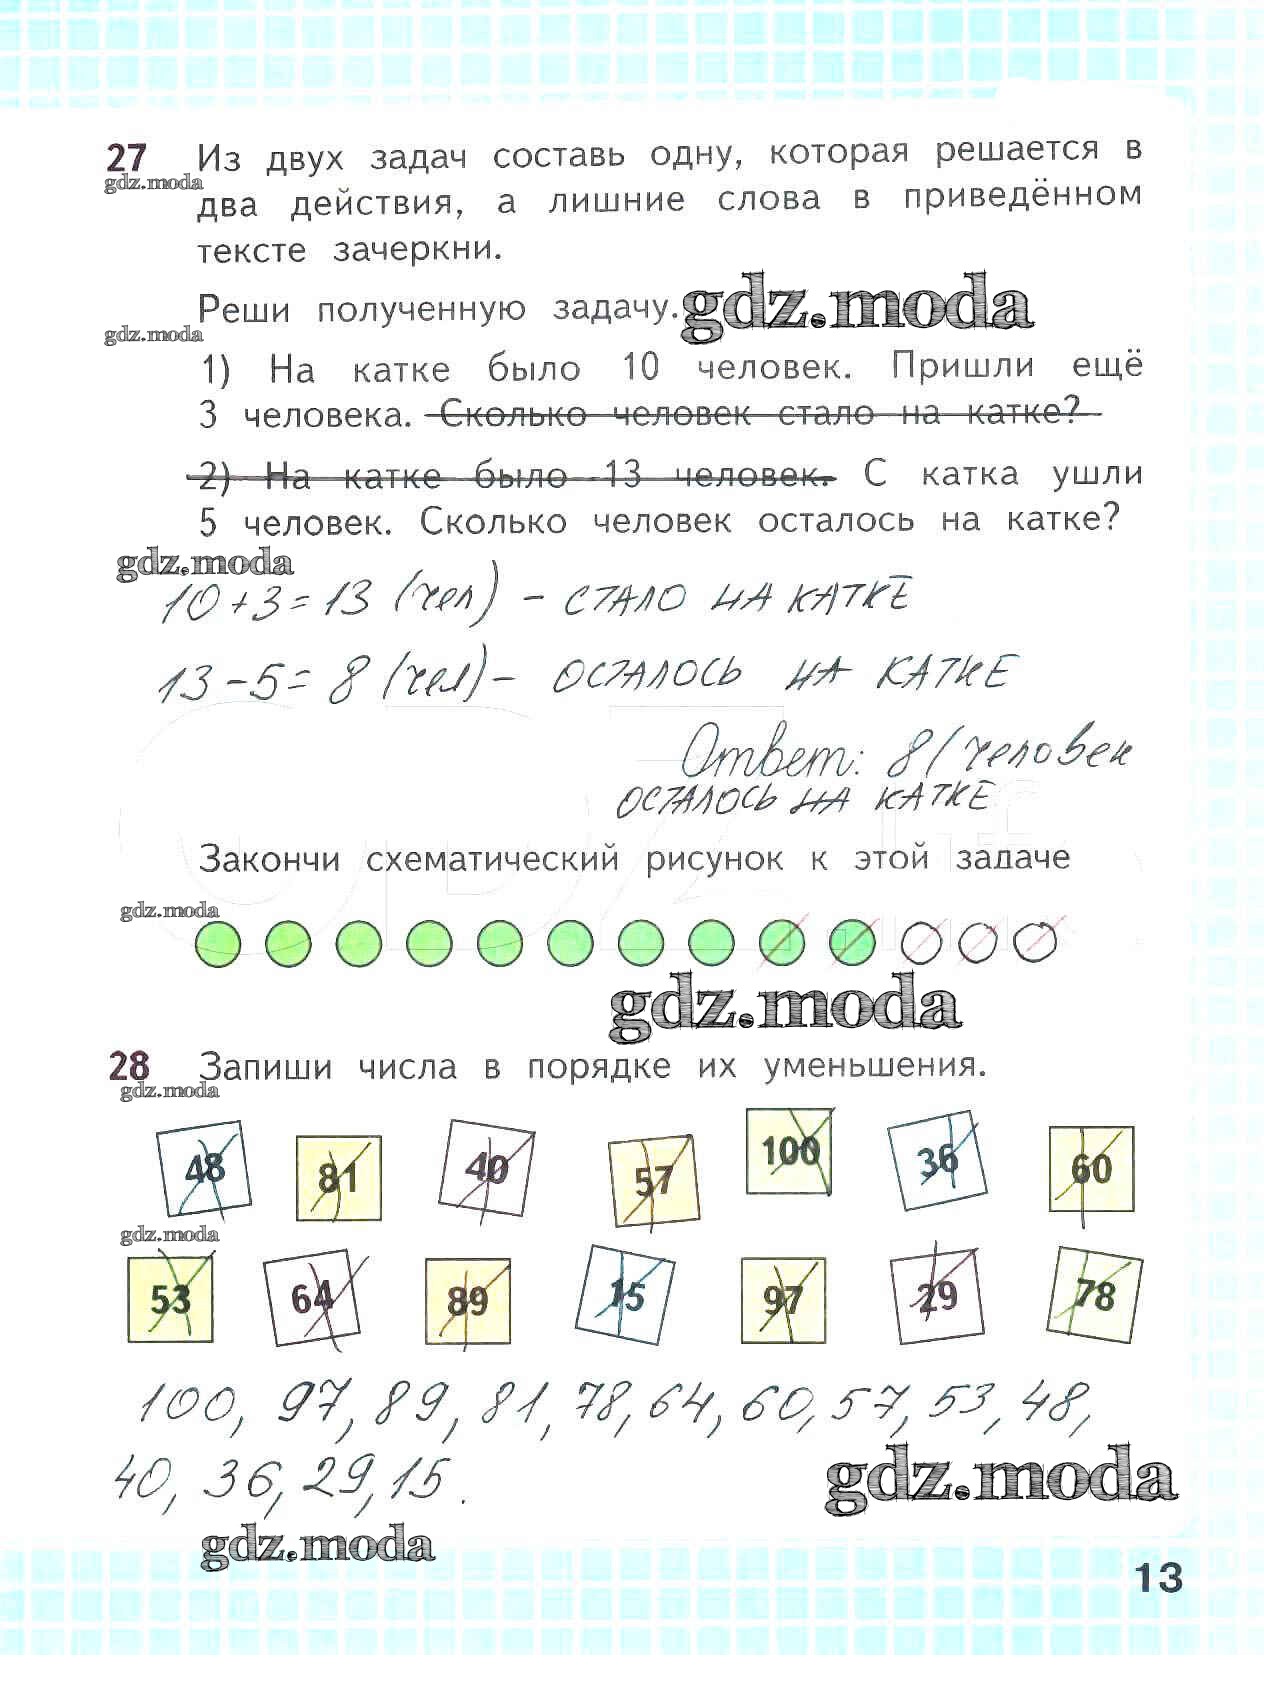 27 Из двух задач составь одну, которая решается в
gdz.moda
два действия, а лишние слова в приведённом
тексте зачеркни.
Реши полученную задачу. gdz.moda
gdz.moda
1) На катке было 10 человек. Пришли ещё
3 человека. Сколько человек стало на катке?
2) На катке было 13 человек. С катка ушли
5 человек. Сколько человек осталось на катке?
gdz.moda
10+3=13 (чел) - СТАЛО НА КАТКЕ
13-5=8 (чел)- ОСТАЛОСЬ НА КАТКЕ
Ответ: 8/человек
ОСТАЛОСЬ НА КАТКЕ
Закончи схематический рисунок к этой задаче
gdz.moda
gdz.moda
28 Запиши числа в порядке их уменьшения.
gdz.moda
48 81 40 57 100 36 60
gdz.moda
53 64 89 15 97 29 78
100, 97, 89, 81, 78, 64, 60, 57, 53, 48,
40, 36, 29, 15.
gdz.moda
gdz.moda
13